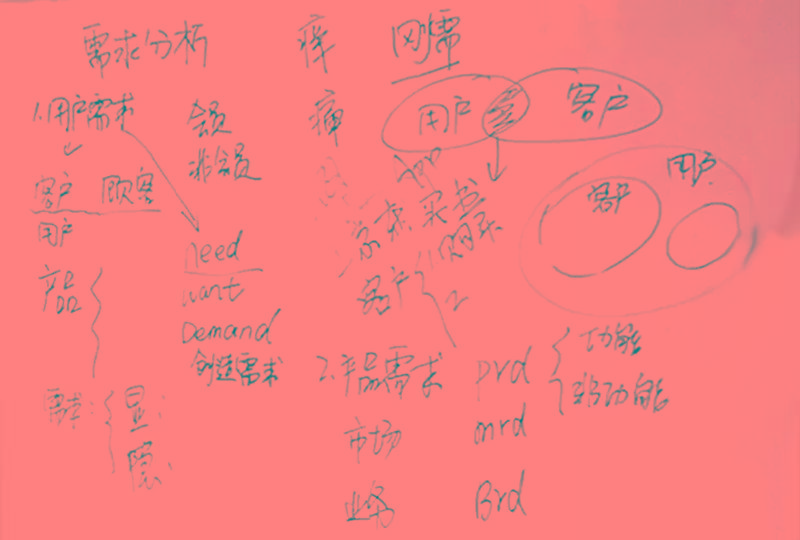 需求分析 痒 刚需
1.用户需求 会员 痛 用户 客户
非会员
客户 顾客 用户
用户 客户
京东 买书
need
产品 want 客户
Demand
创造需求 2.产品需求 prd 功能
非功能
需求: 显:
隐:
市场 mrd
业务 Brd